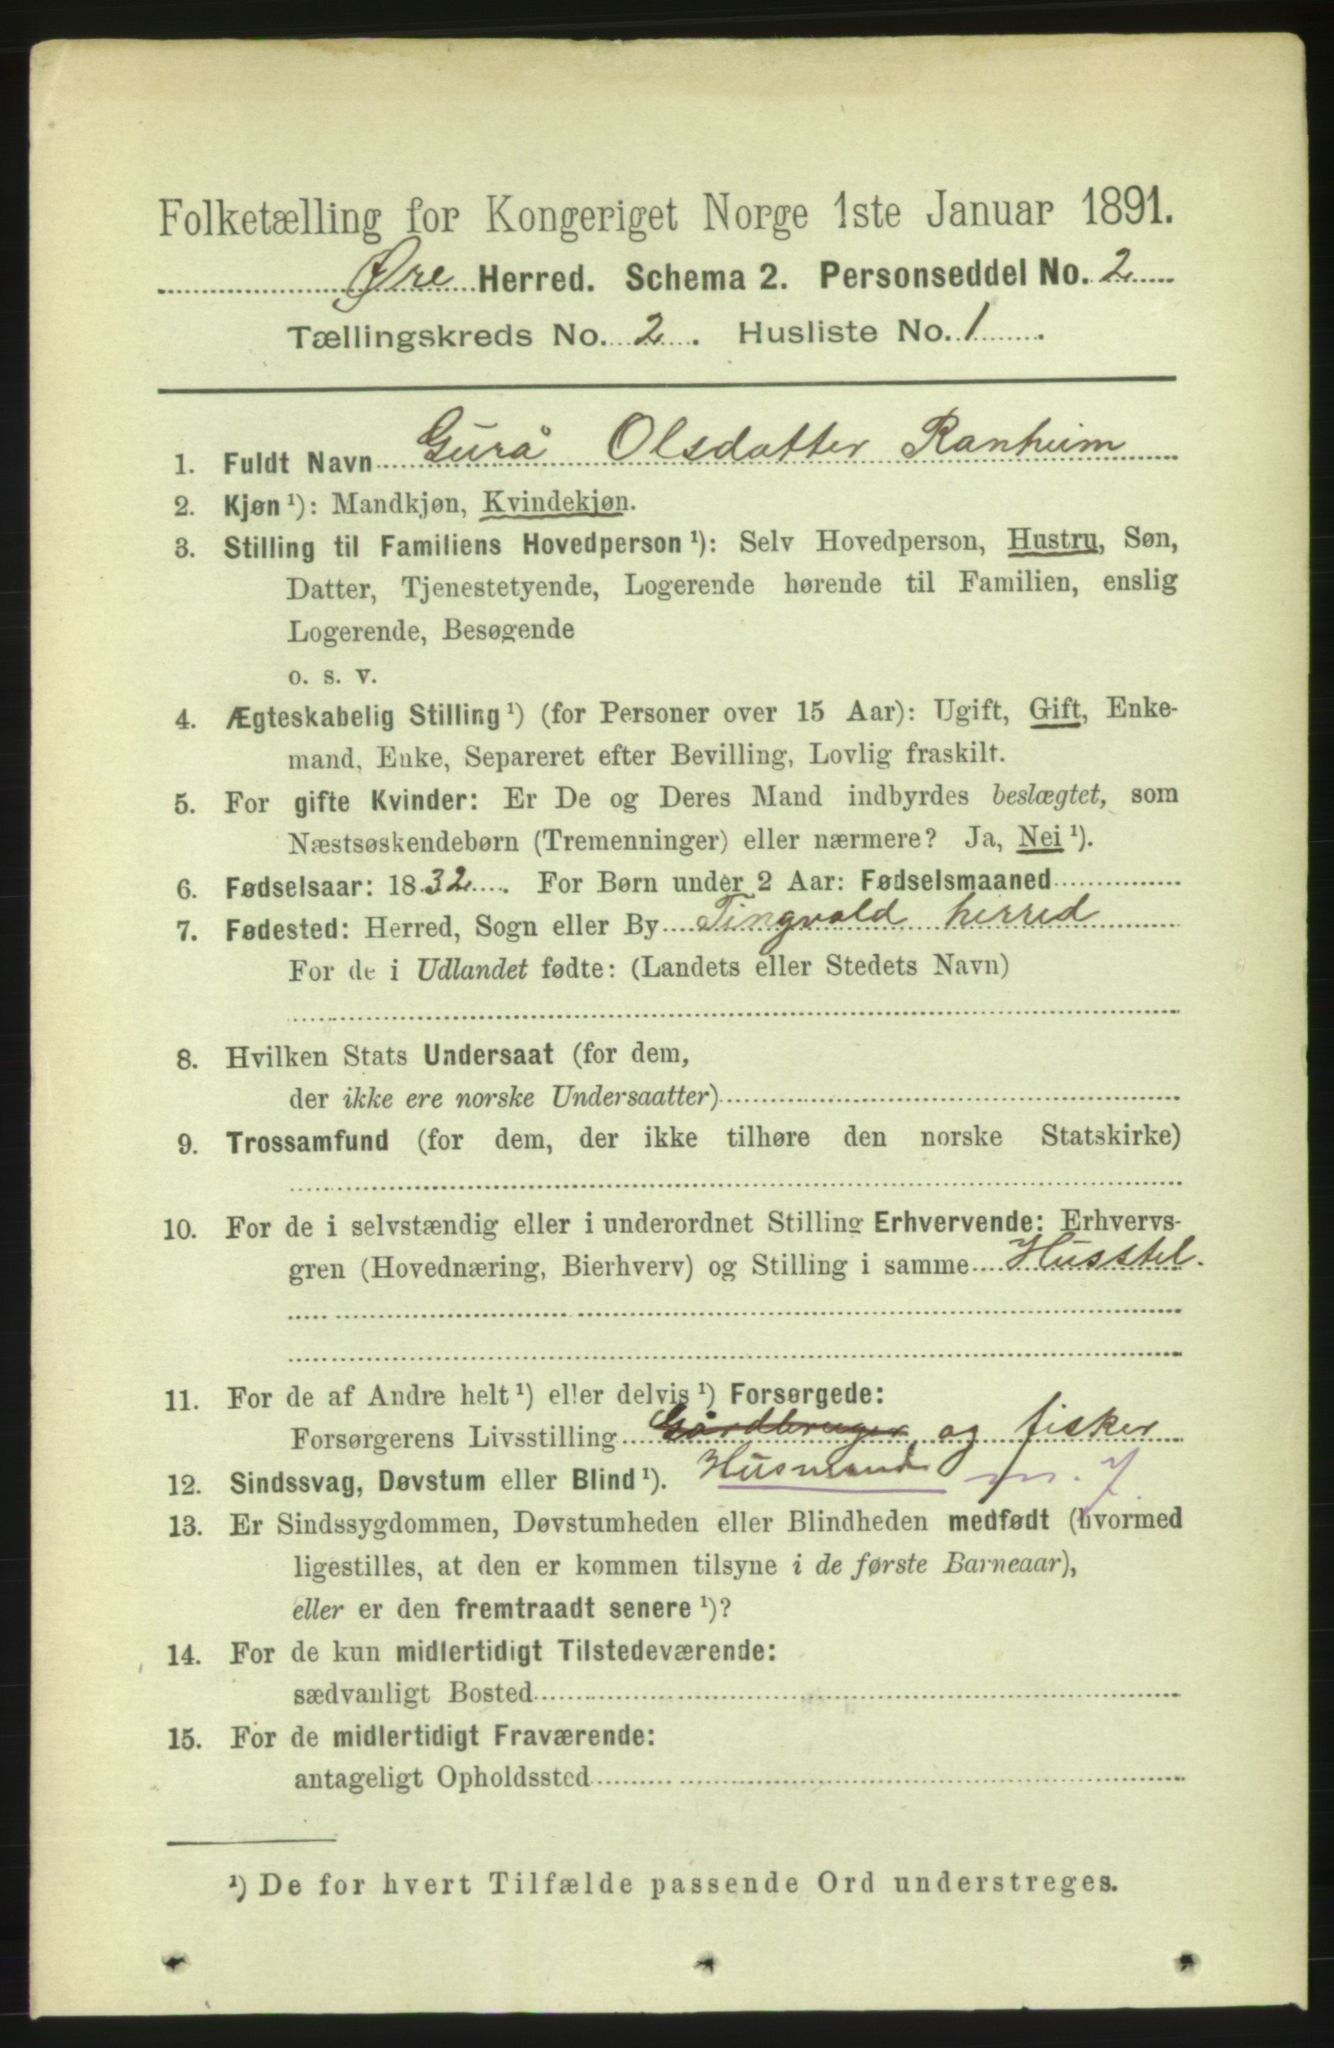 Folketælling for Kongeriget Norge 1ste Januar 1891.
Øre Herred. Schema 2. Personseddel No. 2
Tællingskreds No. 2. Husliste No. 1.
1. Fuldt Navn Gurå Olsdatter Ranheim
2. Kjøn ¹): Mandkjøn, Kvindekjøn.
3. Stilling til Familiens Hovedperson ¹): Selv Hovedperson, Hustru, Søn,
Datter, Tjenestetyende, Logerende hørende til Familien, enslig
Logerende, Besøgende
o. s. v.
4. Ægteskabelig Stilling ¹) (for Personer over 15 Aar): Ugift, Gift, Enke-
mand, Enke, Separeret efter Bevilling, Lovlig fraskilt.
5. For gifte Kvinder: Er De og Deres Mand indbyrdes beslægtet, som
Næstsøskendebørn (Tremenninger) eller nærmere? Ja, Nei ¹).
6. Fødselsaar: 1832. For Børn under 2 Aar: Fødselsmaaned
7. Fødested: Herred, Sogn eller By Tingvold herred
For de i Udlandet fødte: (Landets eller Stedets Navn)
8. Hvilken Stats Undersaat (for dem,
der ikke ere norske Undersaatter)
9. Trossamfund (for dem, der ikke tilhøre den norske Statskirke)
10. For de i selvstændig eller i underordnet Stilling Erhvervende: Erhvervs-
gren (Hovednæring, Bierhverv) og Stilling i samme Husstel.
11. For de af Andre helt ¹) eller delvis ¹) Forsørgede:
Forsørgerens Livsstilling Gårdbruger og fisker
12. Sindssvag, Døvstum eller Blind ¹). Husmand m. J
13. Er Sindssygdommen, Døvstumheden eller Blindheden medfødt (hvormed
ligestilles, at den er kommen tilsyne i de første Barneaar),
eller er den fremtraadt senere ¹)?
14. For de kun midlertidigt Tilstedeværende:
sædvanligt Bosted
15. For de midlertidigt Fraværende:
antageligt Opholdssted
¹) De for hvert Tilfælde passende Ord understreges.